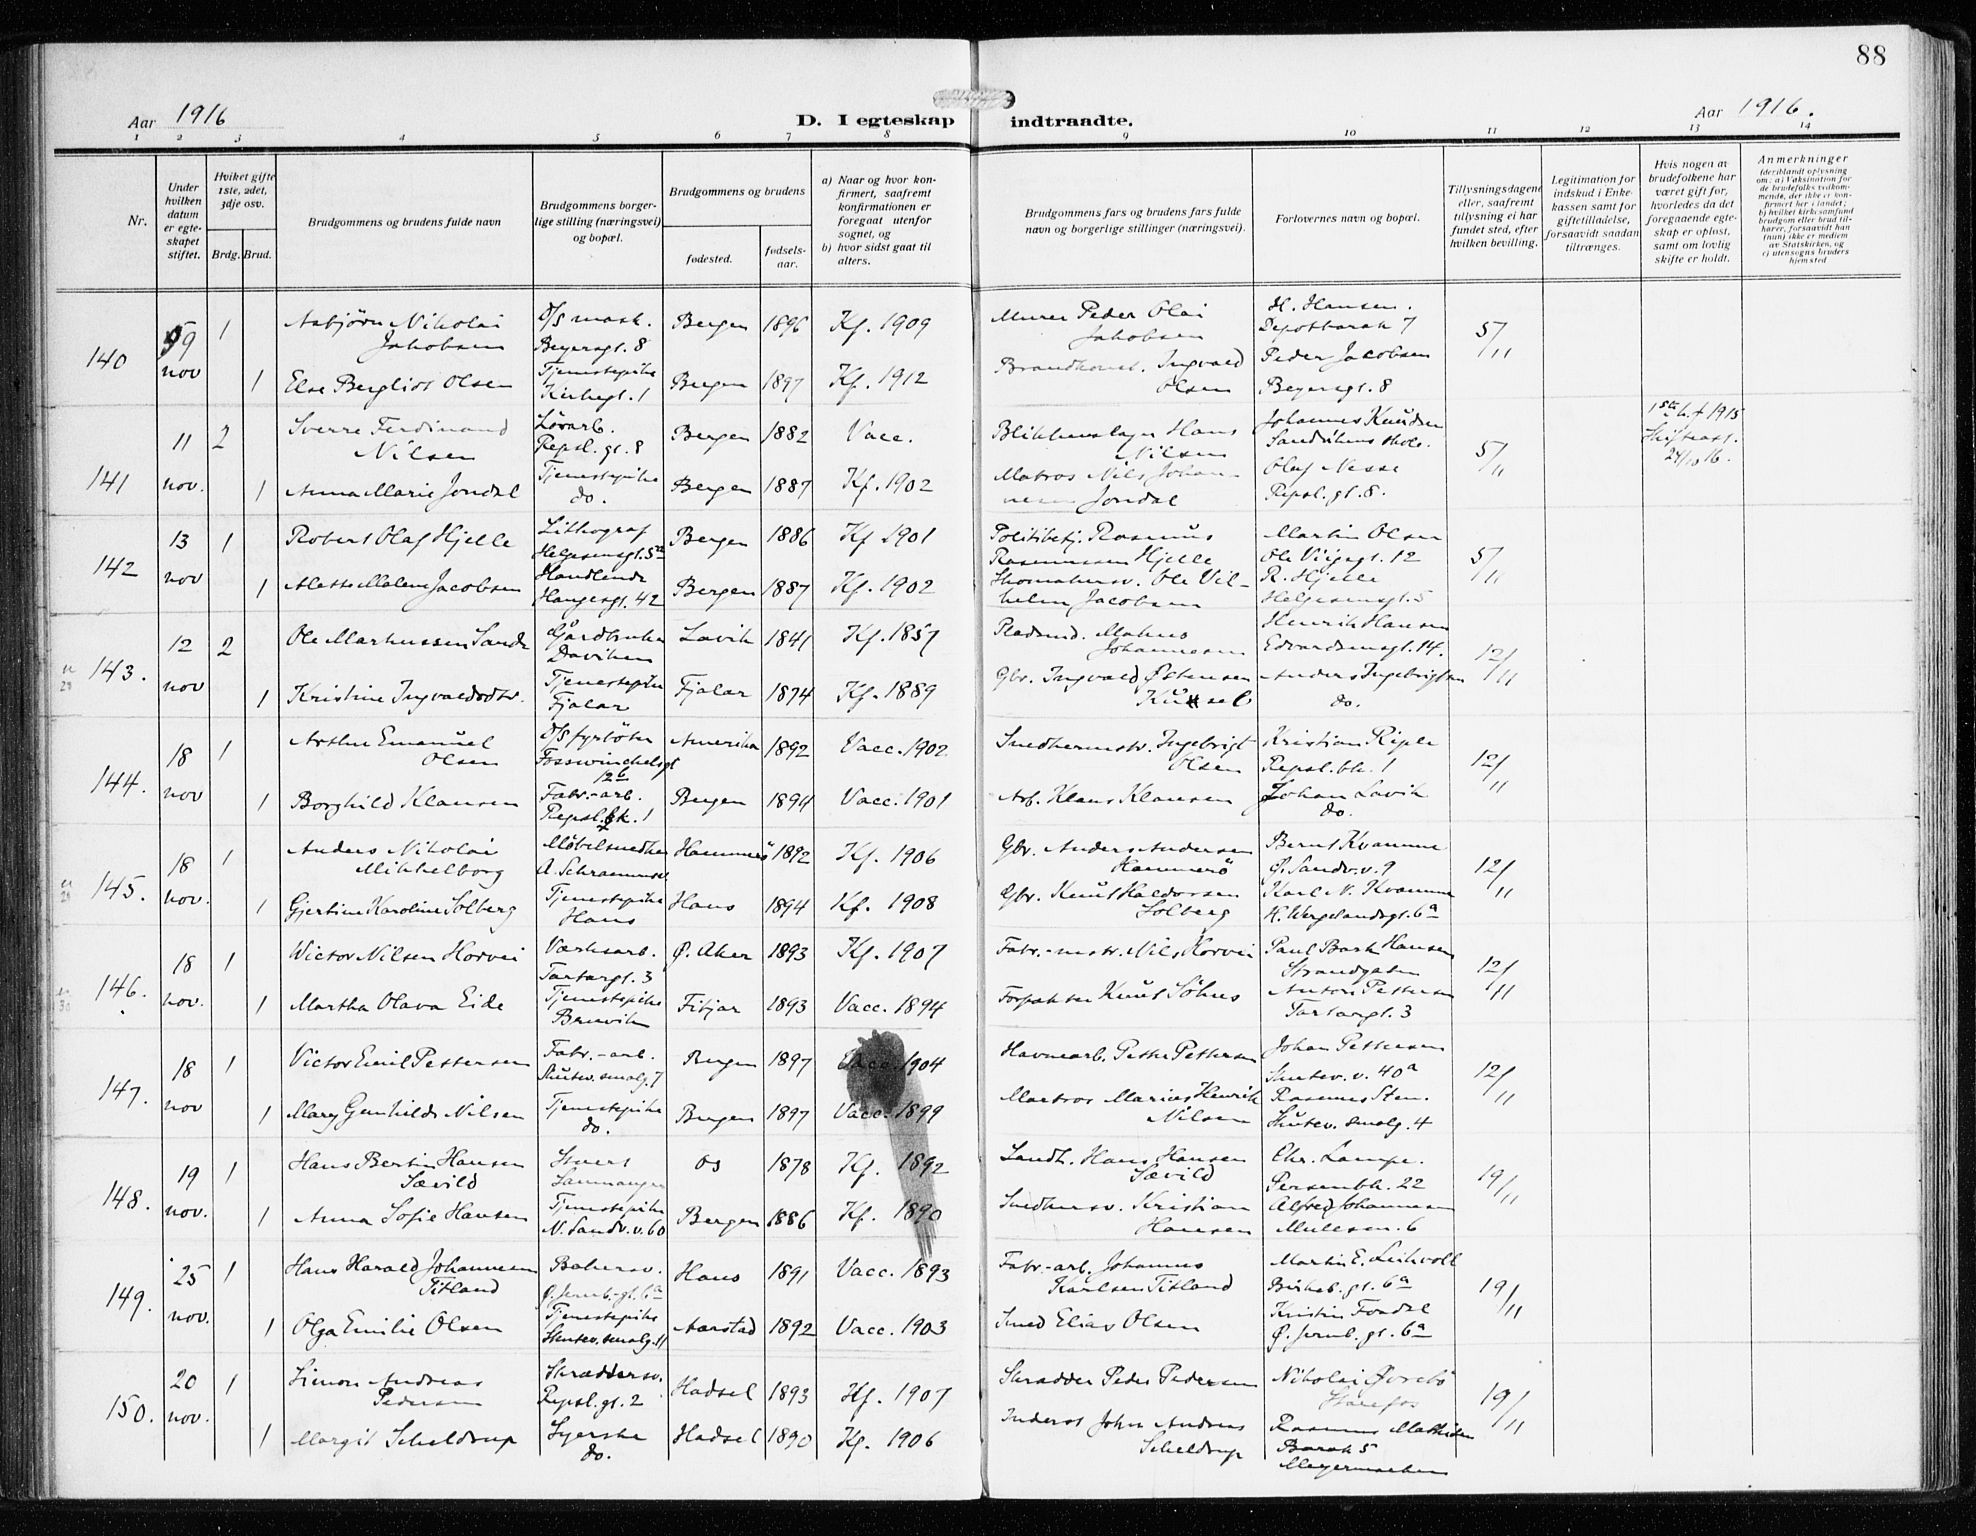 88
Aar 1916
D. I egteskap indtraadte.
Aar 1916.
1 2 3 4 5 6 7 8 9 10 11 12 13 14
Nr.
Under hvilken datum er egteskapet stiftet.
Hvilket gifte 1ste, 2det, 3dje osv.
Brdg. Brud.
Brudgommens og brudens fulde navn
Brudgommens borgerlige stilling (næringsvei) og bopæl.
Brudgommens og brudens
fødested.
fødselsaar.
a) Naar og hvor konfirmert, saafremt konfirmationen er foregaat utenfor sognet, og
b) hvor sidst gaat til alters.
Brudgommens fars og brudens fars fulde navn og borgerlige stillinger (næringsvei).
Forlovernes navn og bopæl.
Tillysningsdagene eller, saafremt tillysning ei har fundet sted, efter hvilken bevilling.
Legitimation for indskud i Enkekassen samt for giftetilladelse, forsaavidt saadan tiltrænges.
Hvis nogen av brudefolkene har været gift før, hvorledes da det foregaaende egteskap er opløst, samt om lovlig skifte er holdt.
Anmerkninger
(deriblandt oplysning om: a) Vaksination for de brudefolks vedkommende, der ikke er konfirmert her i landet; b) hvilket kirkesamfund brudgom eller brud tilhører, forsaavidt han (hun) ikke er medlem av Statskirken, og c) utensogns bruders hjemsted
140 9 nov 1 Asbjørn Nikolai Jakobsen
D/S mask. Beyersgt. 8
Bergen 1896 Kf. 1909
Murer Peder Olai Jakobsen
H. Hansen. Depotbarak 7
5/11
1 Else Bergliot Olsen
Tjenestepike Kirkegt. 1
Bergen 1897 Kf. 1912
Brandkonst. Ingvald Olsen
Peder Jacobsen Beyersgt. 8
141 11 nov. 2 Sverre Ferdinand Nilsen
Løsarb. Repsl. gt. 8
Bergen 1882 Vacc.
Blikkenslager Hans Nilsen
Johannes Knudsen Sandvikens skole.
5/11
1ste h. † 1915 Skifteatt. 24/10 16.
1 Anna Marie Jondal
Tjenestepike do.
Bergen 1887 Kf. 1902
Matros Nils Johannesen Jondal
Olaf Nesse Repsl. gt. 8.
142 13 nov 1 Robert Olaf Hjelle
Lithograf Helgesensgt. 5a
Bergen 1886 Kf 1901
Politibetj. Rasmus Rasmussen Hjelle
Martin Olsen Ole Vigsgt. 12
5/11
1 Alette Malene Jacobsen
Handlende Haugesgt. 42
Bergen 1887 Kf. 1902
Skomakersv. Ole Vilhelm Jacobsen
R. Hjelle Helgesensgt. 5
143. 12 nov 2 Ole Markussen Sande
Gårdbruker Daviken
Lavik 1841 Kf. 1857
Pladsmd. Markus Johannesen
Henrik Hansen Edvardsensgt. 14.
12/11
1 Kristine Ingvaldsdtr.
Tjenestepike Fjalar
Fjalar 1874 Kf. 1889
Gbr. Ingvald Østensen
Anders Ingebrigtsen do.
144. 18 nov 1 Arthur Emanuel Olsen
D/S fyrbøter Fosswinckelsgt 12b
Amerika 1892 Vacc. 1902
Smedhermstr. Ingebrigt Olsen
Kristian Riple Repsl. bk. 1
12/11
1 Borghild Klausen
Fabr.-arb. Repsl. bk. 1
Bergen 1894 Vacc. 1901
Arb. Klaus Klausen
Johan Lavik do.
145. 18 nov. 1 Anders Nikolai Mikkelborg
Møbelsnedker
Hammerö 1892 Kf. 1906
Gbr. Anders Andersen Hammerö
Bernt Kvamme Ø. Sandv. v. 9
12/11
1 Gjertine Karoline Solberg
Tjenestepike Haus
Haus 1894 Kf. 1908
Gbr. Knut Haldorsen Solberg
Karl N. Kvamme H. Wergelandsgt. 6a
146. 18 nov. 1 Wictor Nilsen Horvei
Værksarb. Tartargt. 3
Ø. Aker 1893 Kf. 1907
Fabr.-mstr. Nils Horvei
Paul Bark Hansen Strandgaten
12/11
1 Martha Olava Eide
Tjenestepike Bruvik
Fitjar 1893 Vacc. 1894
Forpakter Knut
Anton Pettersen Tartargt. 3
147. 18 nov 1 Victor Emil Pettersen
Fabr.-arb. Skutev. smalg. 7
Bergen 1897 Vacc. 1904
Havnearb. Petter Pettersen
Johan Pettersen Skutev. v. 40a
12/11
1 Mary Gunhilde Nilsen
Tjenestepike do.
Bergen 1897 Vacc. 1899
Matros Marius Henrik Nilsen
Rasmus Sten. Skutev. smalg. 4
148. 19 nov. 1 Hans Bertin Hansen Sævild
Stuert Samnanger
Os 1878 Kf. 1892
Landh. Hans Hansen Sævild
Chr. Lampe. Persenbk. 22
19/11
1 Anna Sofie Hansen
Tjenestepike N. Sandv. v. 60
Bergen 1886 Kf. 1890
Snedkersv. Kristian Hansen
Alfred Johannesen 6
149. 25 nov. 1 Hans Harald Johannesen Titland
Bakersv. Ø. Jernb.-gt. 6a
Haus 1891 Vacc. 1893
Fabr.-arb. Johannes Karlsen Titland
Martin E. Birkeb. gt. 6a
19/11
1 Olga Emilie Olsen
Tjenestepike Skutev. smalg. 11
Aarstad 1892 Vacc. 1903
Smed Elias Olsen
Kristin Fondal Ø. Jernb. gt. 6a
150. 20 nov. 1 Simon Andreas Pedersen
Skræddersv. Repsl. gt. 2
Hadsel 1893 Kf. 1907
Skrædder Peder Pedersen
Nikolai Øvrebö
19/11
1 Margit Scheldrup
Syerske do.
Hadsel 1890 Kf. 1906
Inderst John Andreas Scheldrup
Rasmus Mathisen Barak 5 Meyermarken